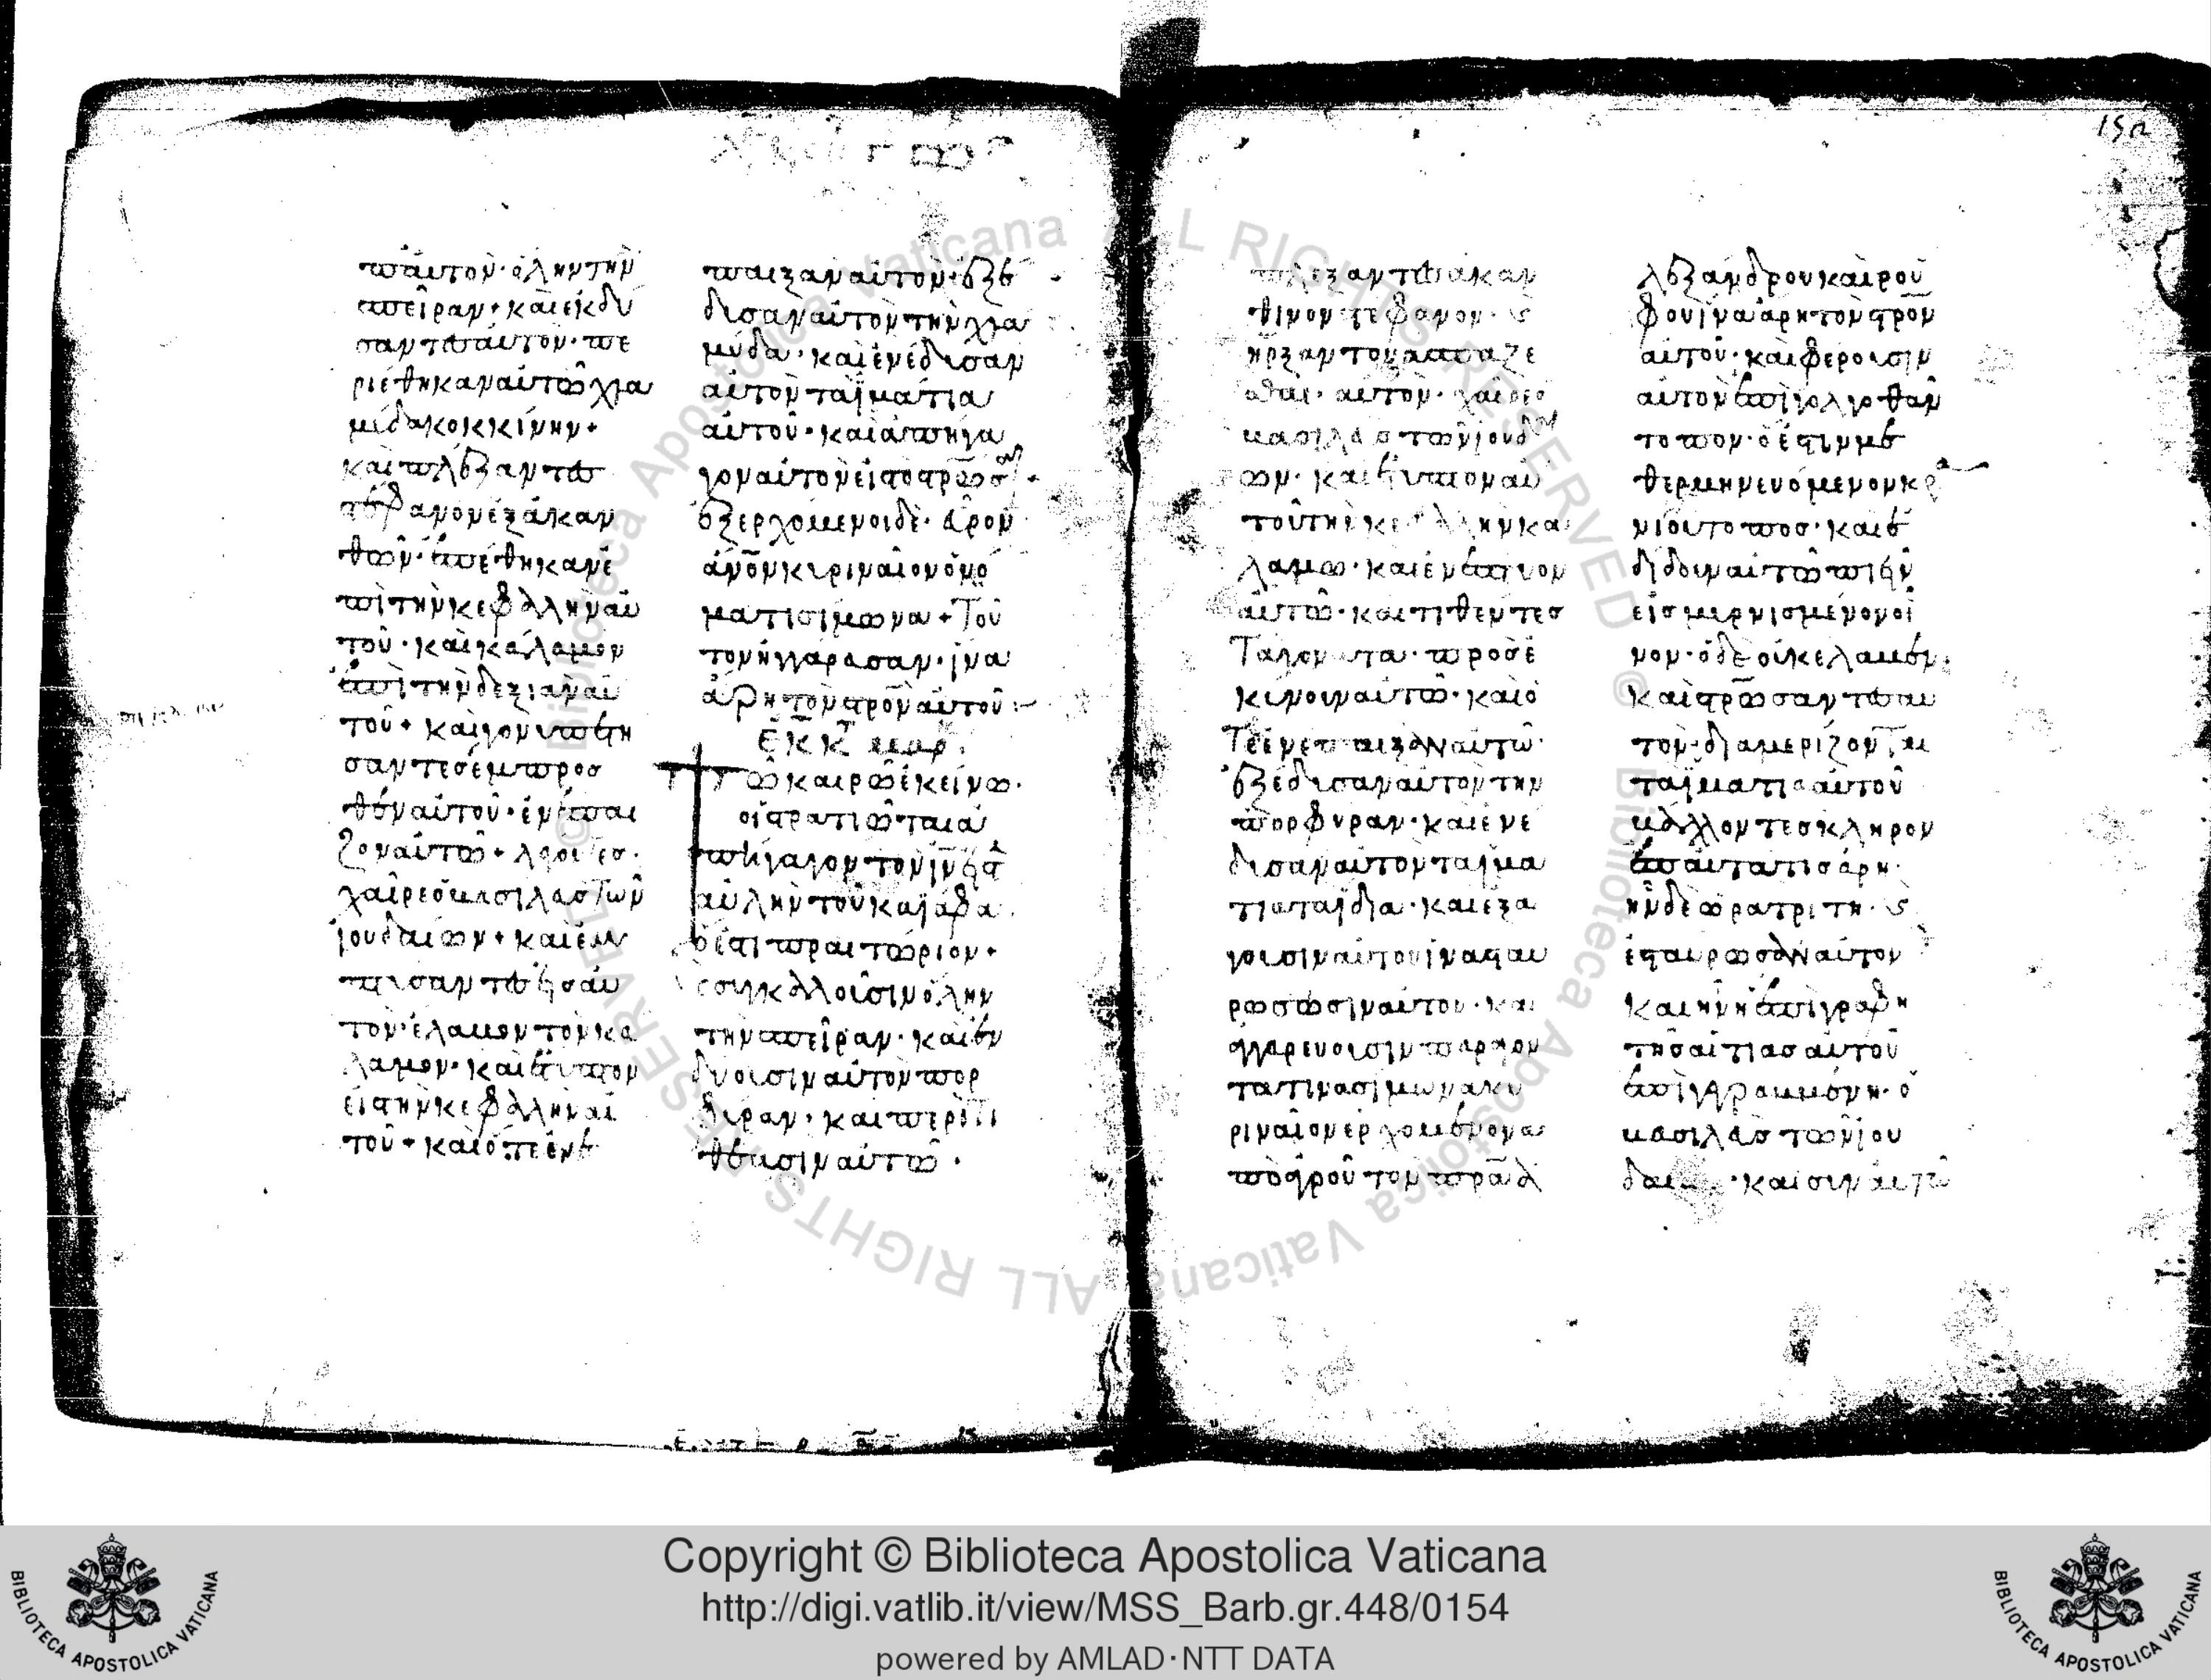 π᾽αυτὸν· ὅλην τὴν
σπεῖραν + καὶ ἐκδύ
σαντες αὐτὸν· πε
ριέθηκαν αὐτῶ χλα
μίδα κοκκίνην +
καὶ πλέξαντες
στέφανον ἐξ ἀκαν
θῶν· ἐπέθηκαν ἐ
πὶ τὴν κεφαλὴν αὐ
τοῦ· καὶ κάλαμον
ἐπὶ τὴν δεξιὰν αὐ
τοῦ + καὶ γονυπετή
σαντες ἔμπροσ
θεν αὐτοῦ· ἐνέπαι
ζον αὐτῶ + λέγοντες·
χαῖρε ὁ βασιλεὺς τῶν
ἰουδαίων + καὶ ἐμ
πτύσαντες εἰς αὐ
τὸν· ἔλαβον τὸν κά
λαμον· καὶ ἔτυπτον
εἰς τὴν κεφαλὴν αὐ
τοῦ + καὶ ὅτε ἐνέ
παιξαν αὐτὸν· ἐξέ
δυσαν αὐτὸν τὴν χλα
μύδα· καὶ ἐνέδυσαν
αὐτὸν τὰ ἱμάτια
αὐτοῦ· καὶ ἀπήγα
γον αὐτὸν εἰς τὸ στρῶσαι·
ἐξερχόμενοι δὲ· εὗρον
ἄνον κυριναῖον ὀνό
ματι σίμωνα + Τοῦ
τον ἠγγάρευσαν· ἵνα
ἄρη τὸν στρον αὐτοῦ:
ΕΚ Κ ΜΑΡ.
Τῶ καιρῶ ἐκείνω·
οἱ στρατιῶται ἀ
πήγαγον τὸν ιν εἰς τ
αὐλὴν τοῦ καϊάφα
ὅ ἐστι πραιτώριον +
καὶ συγκαλοῦσιν ὅλην
τὴν σπεῖραν· καὶ ἐν
δύουσιν αὐτὸν πορ
φύραν· καὶ περιτι
θέασιν αὐτῶ·
πλέξαντες ἀκάν
θινον στέφανον· καὶ
ἤρξαντο ἀσπάζε
σθαι αὐτὸν· χαῖρε ὁ
βασιλεὺς τῶν ἰουδαί
ων· καὶ ἔτυπτον αὐ
τοῦ τὴν κεφαλὴν κα
λάμω· καὶ ἐνέπτυον
αὐτῶ· καὶ τιθέντες
Τὰ γόνατα· προσε
κύνουν αὐτῶ· καὶ ὅ
Τε ἐνέπαιξαν αὐτῶ·
ἐξέδυσαν αὐτὸν τὴν
πορφύραν· καὶ ἐνέ
δυσαν αὐτὸν τὰ ἱμά
τια τὰ ἴδια· καὶ ἐξά
γουσιν αὐτὸν ἵνα σταυ
ρώσωσιν αὐτὸν· καὶ
ἀγγαρεύουσιν παράγον
τά τινα σίμωνα κυ
ριναῖον ἐρχόμενον ἀ
π᾽ ἀγροῦ τὸν πρα ἀ
λεξάνδρου καὶ ρού
φου ἵνα ἄρη τὸν στρον
αὐτοῦ· καὶ φέρουσιν
αὐτὸν ἐπὶ γολγοθᾶν
τόπον· ὅ ἐστιν με
θερμηνευόμενον κρα
νίου τόπος· καὶ ἐ
δίδουν αὐτῶ πιεῖν
ἐσμυρνισμένον οἶ
νον· ὁ δὲ οὐκ ἔλαβεν·
καὶ στρώσαντες αὐ
τὸν· διαμερίζονται
τὰ ἱμάτια αὐτοῦ
βάλλοντες κλῆρον
ἐπ᾽ αὐτὰ τίς τί ἄρη·
ἦν δὲ ὥρα τρίτη· καὶ
ἐσταύρωσαν αὐτὸν
καὶ ἦν ἡ ἐπιγραφὴ
τῆς αἰτίας αὐτοῦ
ἐπιγεγραμμένη· ὁ
βασιλεὺς τῶν ἰου
δαίων· καὶ σὺν αὐτῶ
Copyright © Biblioteca Apostolica Vaticana
http://digi.vatlib.it/view/MSS_Barb.gr.448/0154
powered by AMLAD·NTT DATA